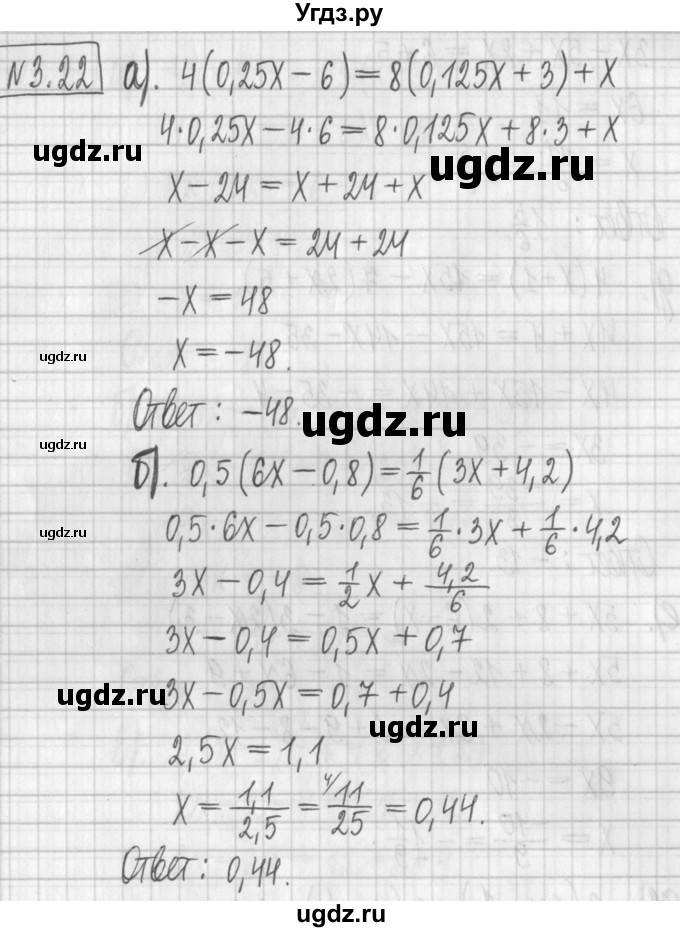 Угдз.ру
№3.22 а). 4(0,25x − 6) = 8(0,125x + 3) + x
4·0,25x − 4·6 = 8·0,125x + 8·3 + x
ugdz.ru
ugdz.ru
x − 24 = x + 24 + x
x − x − x = 24 + 24
−x = 48
ugdz.ru
x = −48.
ugdz.ru
Ответ: −48.
ugdz.ru
б). 0,5(6x − 0,8) = 1/6 (3x + 4,2)
ugdz.ru
0,5·6x − 0,5·0,8 = 1/6 · 3x + 1/6 · 4,2
3x − 0,4 = 1/2 x + 4,2/6
3x − 0,4 = 0,5x + 0,7
ugdz.ru
3x − 0,5x = 0,7 + 0,4
ugdz.ru
2,5x = 1,1
x = 1,1/2,5 = 4/ 11/25 = 0,44.
Ответ: 0,44.
ugdz.ru
ugdz.ru